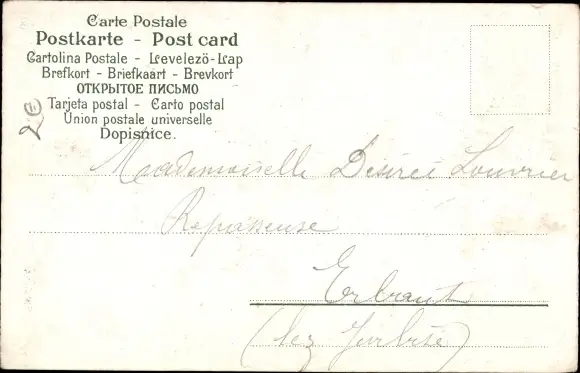 Carte Postale
Postkarte - Post card
Cartolina Postale - Levelezö-Lap
Brefkort - Briefkaart - Brevkort
ОТКРЫТОЕ ПИСЬМО
Tarjeta postal - Carto postal
Union postale universelle
Dopisnice.
Mademoiselle Desirée Louvrier
Repasseuse
Erbaut
(lez Jurbise)